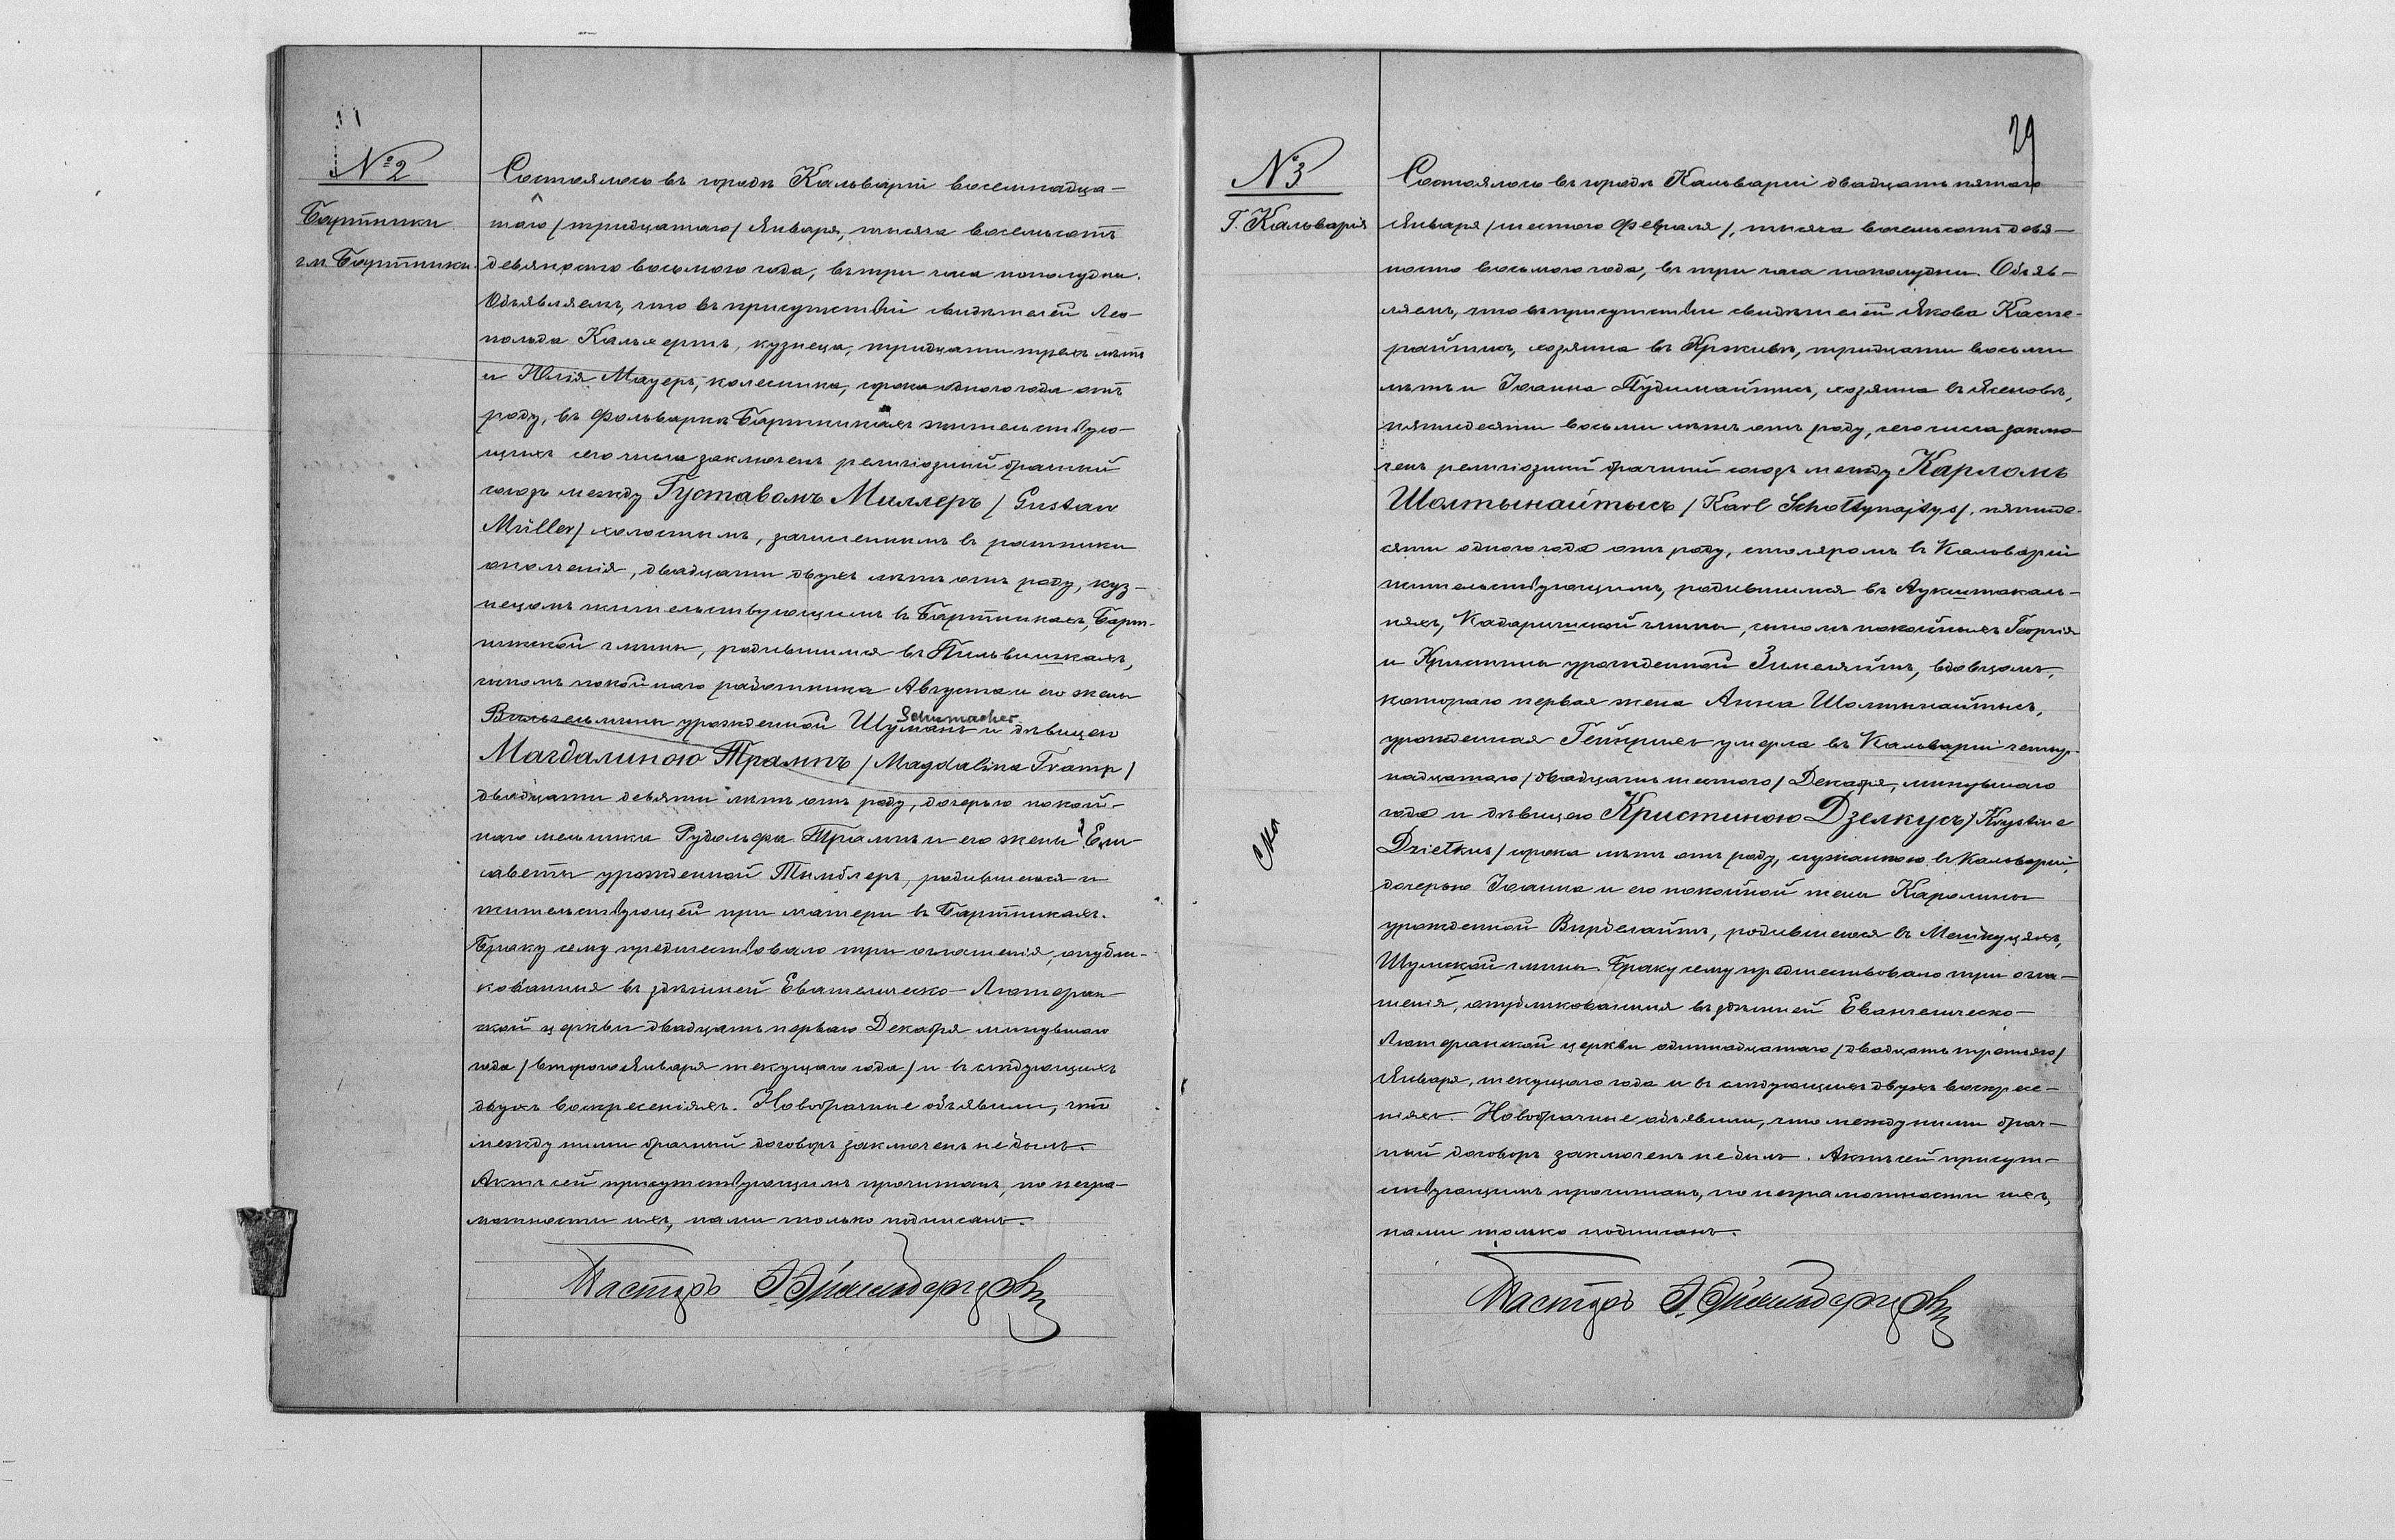 № 2
Бартники
гм. Бартники.
Состоялось въ городѣ Кальваріи восемнадца-
таго /тридцатаго/ Января, тысяча восемьсотъ
девяносто восьмого года, въ три часа пополудни.
Объявляемъ, что въ присутствіи свидѣтелей Лео-
польда Кальвертъ, кузнеца, тридцати трехъ лѣтъ
и Юлія Мауеръ, колесника, сорока одного года отъ
роду, въ Фольваркѣ Бартникахъ жительствую-
щихъ сего числа заключенъ религіозный брачный
союзъ между Густавомъ Миллеръ / Gustaw
Müller/ холостымъ, зачисленнымъ въ ратники
ополченія, двадцати двухъ лѣтъ отъ роду, куз-
нецомъ жительствующимъ въ Бартникахъ, Барт-
никской гмины, родившимся въ Пильвишкахъ,
сыномъ покойнаго работника Августа и его жены
Вильгельмины урожденной Шуманъ и дѣвицею
Schumacher
Магдалиною Трампъ / Magdalina Tramp /
двадцати девяти лѣтъ отъ роду, дочерью покой-
наго мельника Рудольфа Трампъ и его жены Ели-
саветы урожденной Тымблеръ, родившеюся и
жительствующей при матери въ Бартникахъ.
Браку сему предшествовало три оглашенія, опубли-
кованныя въ здѣшней Евангелическо-Лютеран-
ской церкви двадцать перваго Декабря минувшаго
года / второго Января текущаго года / и въ слѣдующихъ
двухъ воскресеніяхъ. Новобрачные объявили, что
между ними брачный договоръ заключенъ не былъ.
Актъ сей присутствующимъ прочитанъ, по негра-
мотности ихъ, нами только подписанъ.
Пасторъ
29
№ 3
Г. Кальварія
Состоялось въ городѣ Кальваріи двадцать пятаго
Января /шестого Февраля/, тысяча восемьсотъ девя-
носто восьмого года, въ три часа пополудни. Объяв-
ляемъ, что въ присутствіи свидѣтелей Якова Каспе-
райтисъ, хозяина въ Крживѣ, тридцати восьми
лѣтъ и Іоанна Пудимайтисъ, хозяина въ Ясеновѣ,
пятидесяти восьми лѣтъ отъ роду, сего числа заклю-
ченъ религіозный брачный союзъ между Карломъ
Шолтынайтысъ / Karl Schołtynajtys/, пятиде-
сяти одного года отъ роду, столяромъ въ Кальваріи
жительствующимъ, родившимся въ Аукштокаль-
няхъ, Кадаришской гмины, сыномъ покойныхъ Георгія
и Кристины урожденной Зимеляйтъ, вдовцомъ,
котораго первая жена Анна Шолтынайтысъ,
урожденная Гейнрихъ умерла въ Кальваріи четыр-
надцатаго /двадцать шестого/ Декабря, минувшаго
года и дѣвицею Кристиною Дзелкусъ/ Krystine
Dziełkus/ сорока лѣтъ отъ роду, служанкою въ Кальваріи,
дочерью Іоанна и его покойной жены Каролины
урожденной Вирделайтъ, родившеюся въ Мешкуцяхъ,
Шумской гмины. Браку сему предшествовало три огла-
шенія, опубликованныя въ здѣшней Евангелическо-
Лютеранской церкви одиннадцатаго /двадцать третьяго/
Января, текущаго года и въ слѣдующихъ двухъ воскресе-
ніяхъ. Новобрачные объявили, что между ними брач-
ный договоръ заключенъ не былъ. Актъ сей присут-
ствующимъ прочитанъ, по неграмотности ихъ,
нами только подписанъ.
Пасторъ